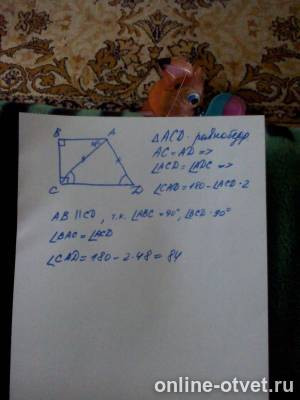 B A
48°
C D
△ACD - равнобедр
AC = AD =>
∠ACD = ∠ADC =>
∠CAD = 180 - ∠ACD · 2
AB || CD, т.к. ∠ABC = 90°, ∠BCD = 90°
∠BAC = ∠ACD
∠CAD = 180 - 2 · 48 = 84
online-otvet.ru